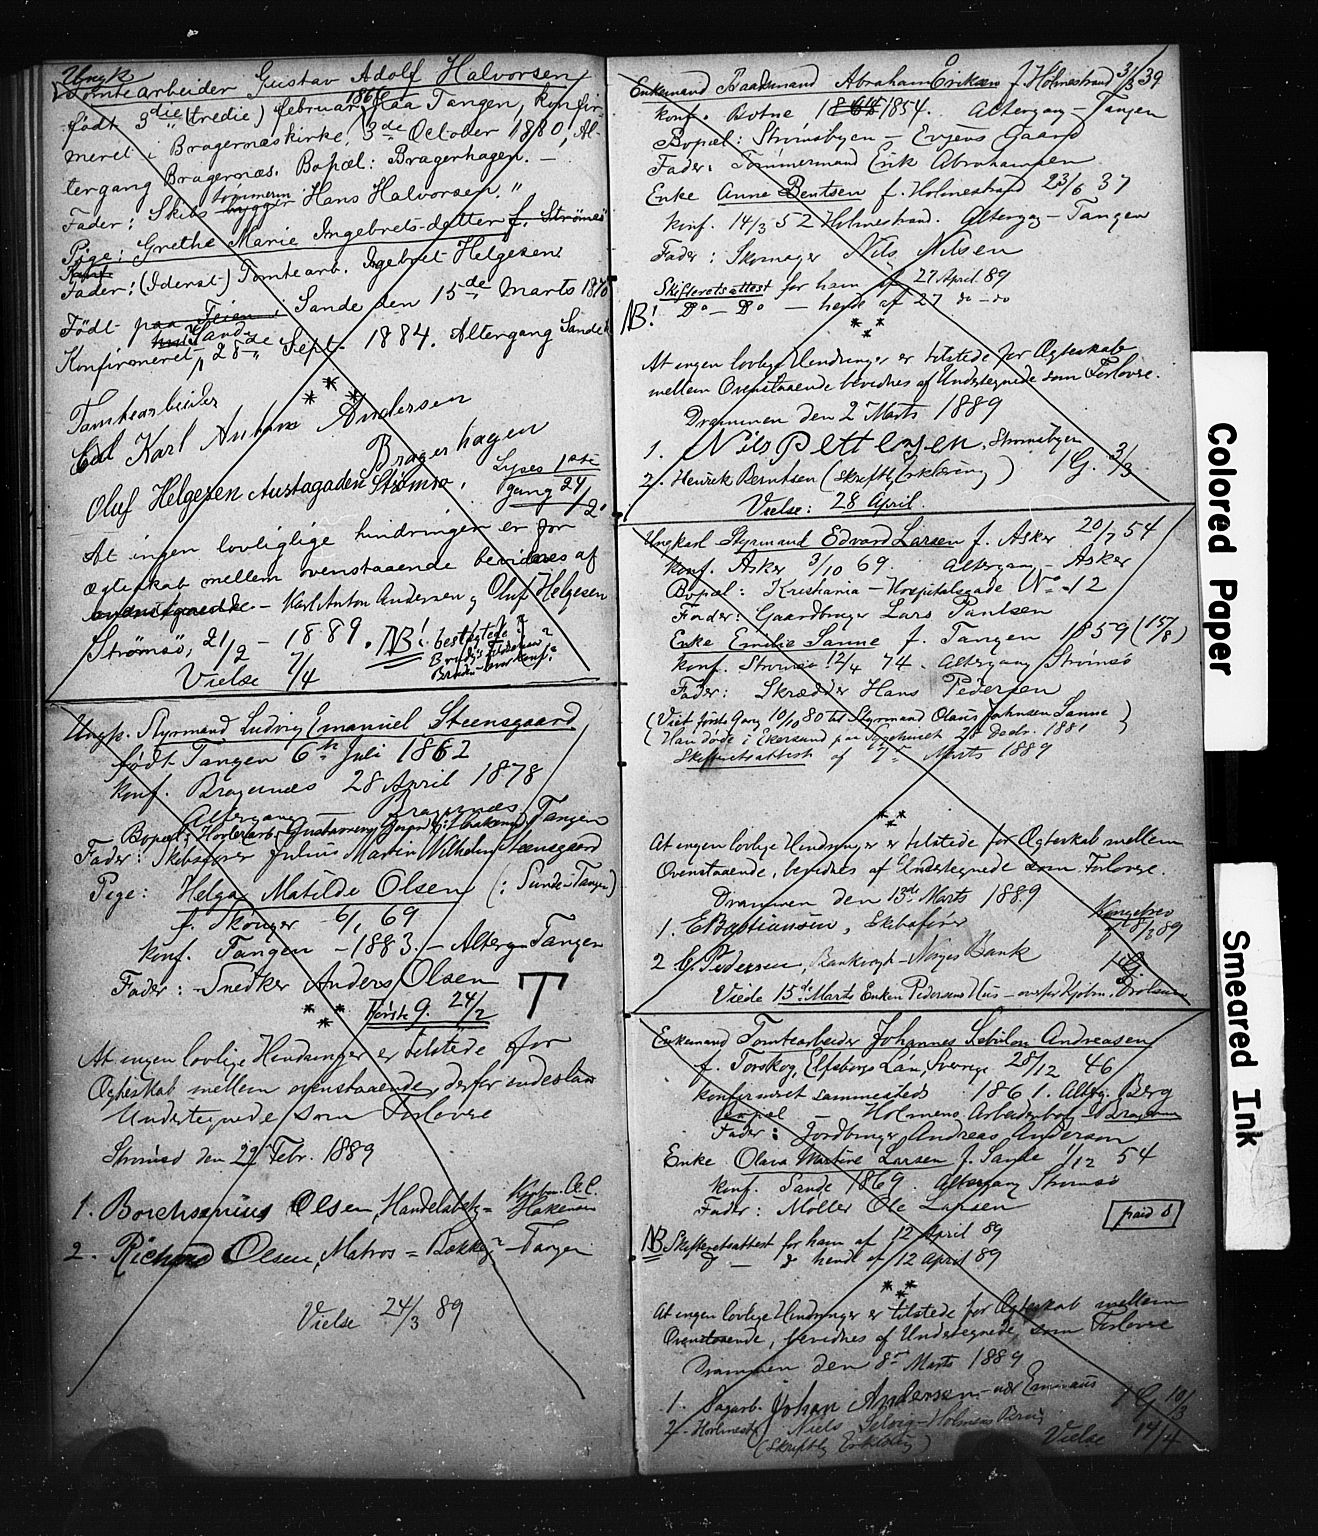 Ungk
Tomtearbeider Gustav Adolf Halvorsen
født 3die (tredie) februar 1866 paa Tangen, konfir-
meret i Bragernæs kirke, 3de October 1880, Al-
tergang Bragernæs. Bopæl: Bragerhagen. —
Fader: Skibstømmerm Hans Halvorsen. "
Pige: Grethe Marie Ingebrets-datter f. Strømsø
Fader: (Iderst) Tomtearb. Ingebret Helgesen
Født paa i Sande den 15de Marts 1870
Konfirmeret Sande 28de Sept. 1884. Altergang Sande
Tomtearbeider
Karl Anton Andersen
Bragerhagen
Oluf Helgesen Austagaden Strømsø.
Lyses 1ste
gang 24/2.
At ingen lovliglige hindringer er for
ægteskab mellem ovenstaaende bevidnes af
Karl Anton Andersen & Oluf Helgesen
Strømsø, 21/2 - 1889. NB!
Vielse 7/4
Ungk. Styrmand Ludvig Emanuel Steensgaard
født Tangen 6te Juli 1862
konf. Bragernæs 28 April 1878
Altergang — Bragernæs
Bopæl: Tangen
Fader: Skibsfører Julius Martin Wilhelm Steensgaard
Pige: Helga Matilde Olsen (: Sunde i Tangen)
f. Skoger 6/1 69
konf. Tangen - 1883. - Alterg. Tangen
Fader: Snedker Anders Olsen T
Første G. 24/2
At ingen lovlige Hindringer er tilstede for
Ægteskab mellem ovenstaaende, derfor indestaar
Undertegnede som Forlovere
Strømsø den 22 Febr. 1889
1. Borchsenius Olsen, Handelsbetj.
2. Richard Olsen, Matros = - Tangen
Vielse 24/3 89
Enkemand Baadsmand Abraham Eriksen f. Holmestrand 31/3 39
konf. Botne 1864 1854. Altergang - Tangen
Bopæl: Strømsbyen - Evjens Gaard
Fader: Tømmermand Erik Abrahamsen
Enke Anne Bentsen f. Holmestrand 23/6 37
konf. 14/3 52 Holmestrand. Altergang - Tangen
Fader: Skomager Nils Nilsen
Skifteretsattest for ham af 27 April 89
NB! Do - Do — hende af 27 do - do
At ingen lovlige Hindringer er tilstede for Ægteskab
mellem Ovenstaaende bevidnes af Undertegnede som Forlovere.
Drammen den 2 Marts 1889
1. Nils Pettersen, Strømsbyen
2. Henrik Berntsen (Skriftlig Erklæring) 1 G. 3/3
Vielse: 28 April.
Ungkarl Styrmand Edvard Larsen f. Asker 20/7 54
konf. Asker 3/10 69. Altergang - Asker
Bopæl: Kristiania - Hospitalsgade No 12
Fader: Gaardbruger Lars Paulsen
Enke Emilie Sanne f. Tangen 1859 (15/8)
konf. Strømsø 12/4 74. Altergang Strømsø
Fader: Skrædder Hans Pedersen
(Viet første Gang 10/10 80 til Styrmand Olaus Johnsen Sanne)
(Han døde i Ekersund paa Sygehuset 28 Decbr. 1881)
Skifteretsattest af Marts 1889
At ingen lovlige Hindringer er tilstede for Ægteskab mellem
Ovenstaaende, bevidnes af Undertegnede som Forlovere.
Drammen den 13de Marts 1889
1. E Bastiansen, Skibsfører
Kongebrev
8/3 89
2 C. Pedersen, Norges Bank
Viede 15de Marts Enken Pedersens Hus -
Enkemand Tomtearbeider Johannes Sebulon Andreasen
f. Torskog, Elfsborgs Län, Sverige 28/12 46
konfirmeret sammesteds 1861. Alterg. Berg
Bopæl - Holmens Arbeiderbolig
Fader: Jordbruger Andreas Andersen
Enke Olava Martine Larsen f. Sande 1/12 54
konf. Sande 1869. Altergang Strømsø
Fader: Møller Ole Larsen
NB Skifteretsattest for ham af 12 April 89
do — do hende af 12 April 89
At ingen lovlige Hindringer er tilstede for Ægteskab mellem
Ovenstaaende, bevidnes af Undertegnede som Forlovere
Drammen den 8de Marts 1889
1. Sagarb. Johan Andersen - ved Emmaus 1 G 10/3
2. Niels
(Skriftlig Erklæring) Vielse 14/4
Colored Paper
Smeared Ink